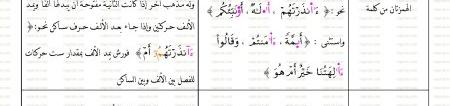 الهمزتان من كلمة
نحو: ﴿ ءَأَنذَرْتَهُمْ ، أَءِلَهٌ ، أَؤُنَبِّئُكُم ﴾
واستثنى : ﴿ أَئِمَّةَ ، ءَأَمِنتُم ، وَقَالُوا
ءَأَٰلِهَتُنَا خَيْرٌ أَمْ هُوَ ﴾
وله مذهب آخر إذا كانت الثانية مفتوحة أن يبدلها ألفا ويمد
الألف حركتين وإذا جاء بعد الألف حرف ساكن نحو:﴿
ءَأَنذَرْتَهُمُۥٓ أَمْ ﴾ فورش يمد الألف بمقدار ست حركات
للفصل بين الألف وبين الساكن